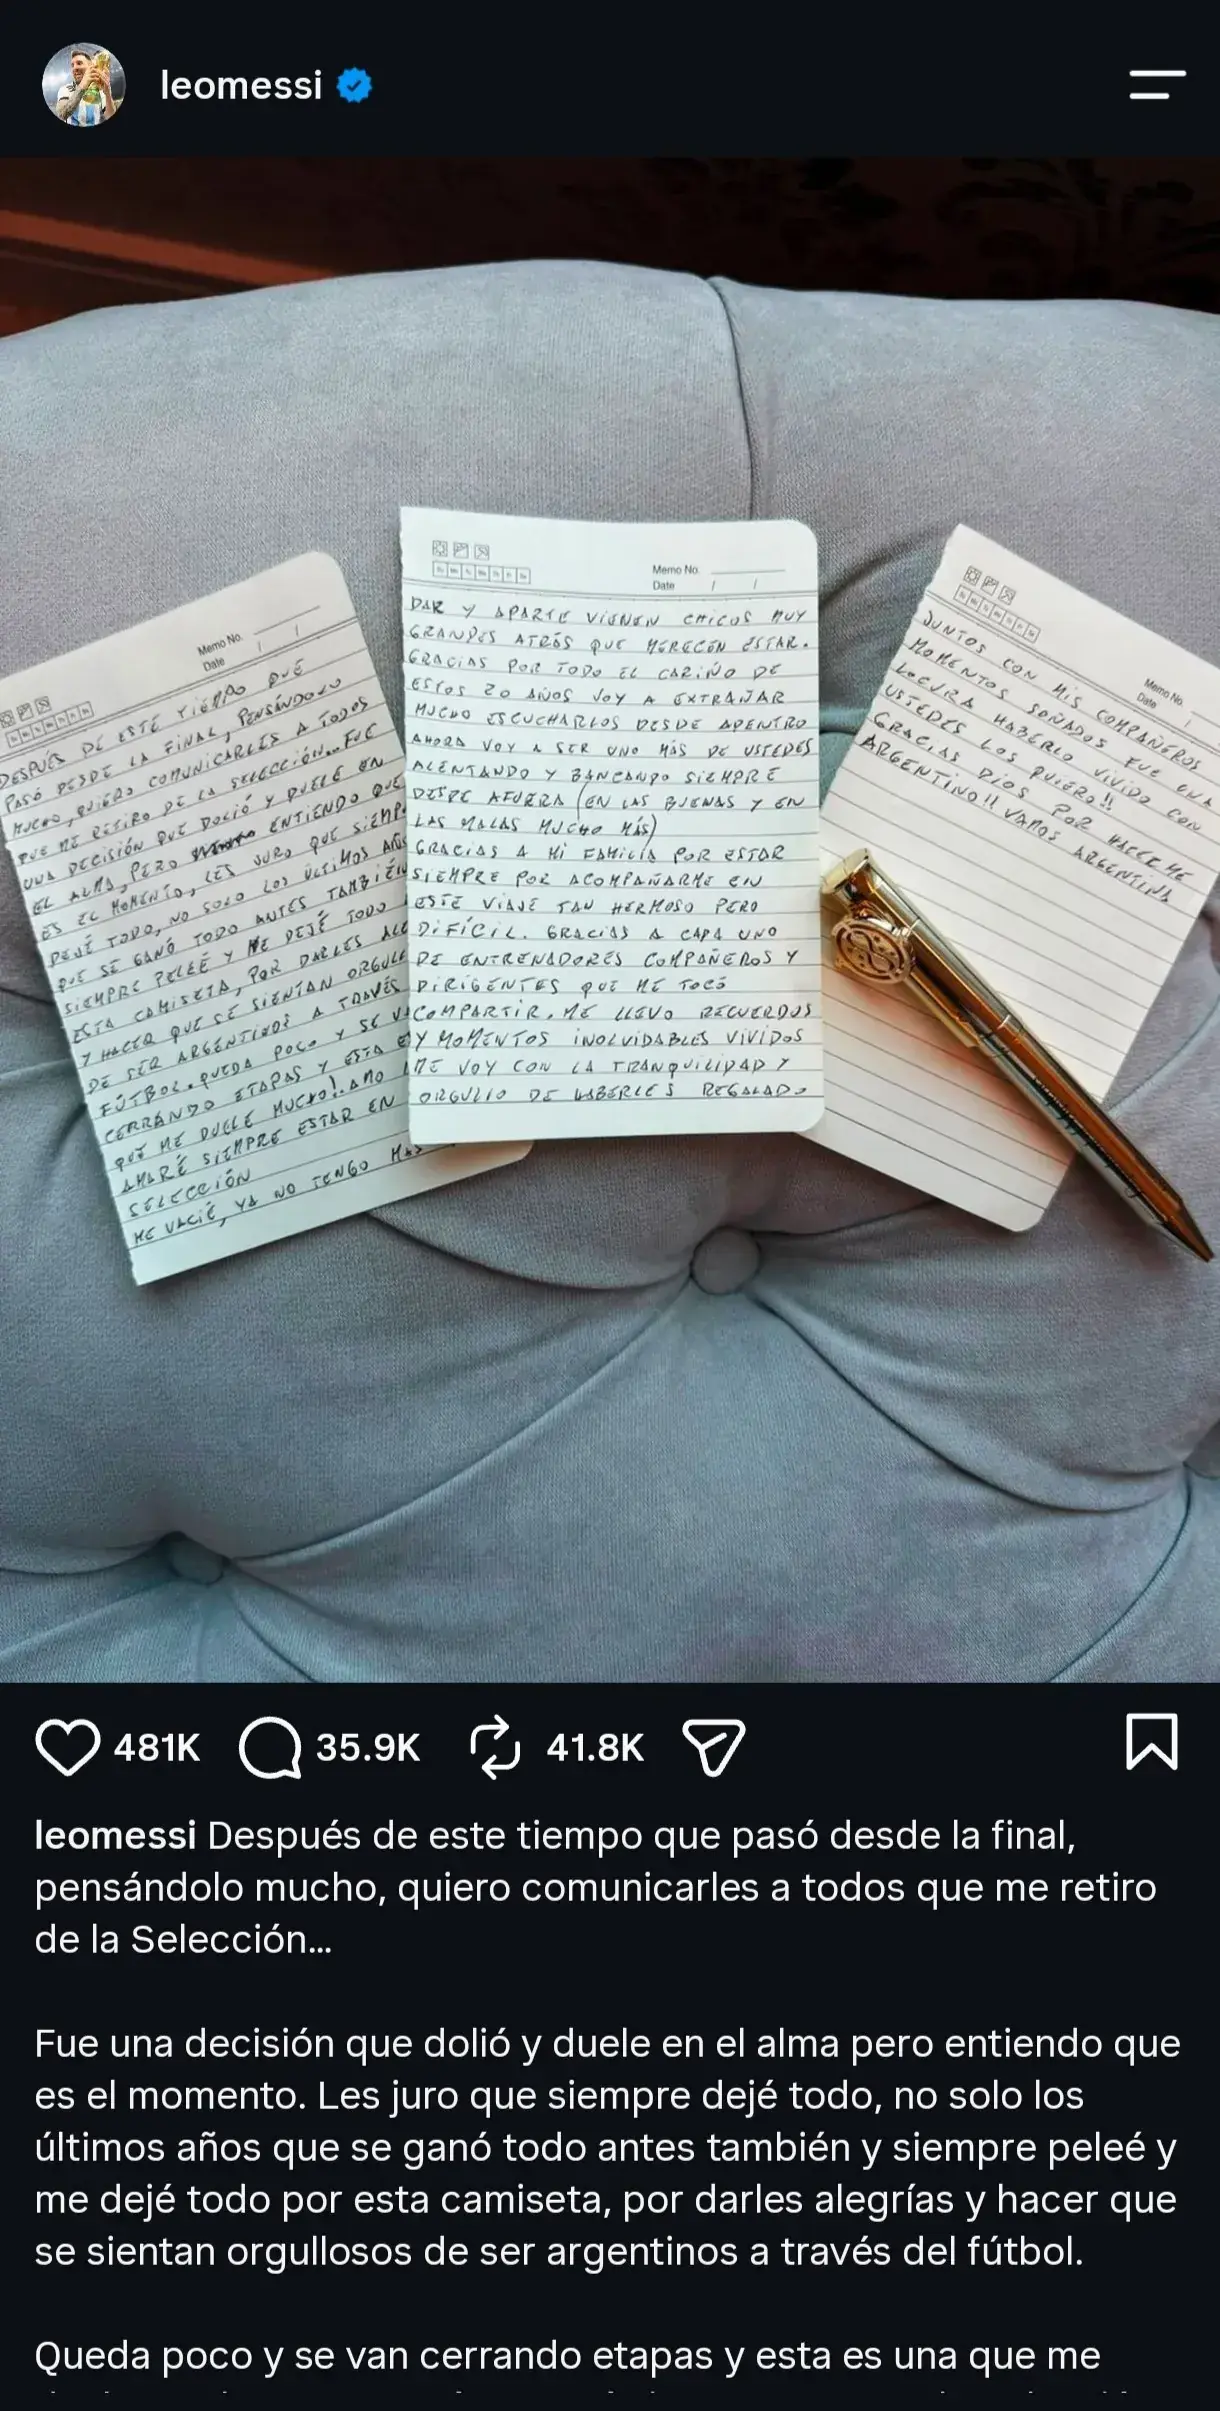 leomessi
Memo No.
Date / /
DESPUÉS DE ESTE TIEMPO QUE
PASÓ DESDE LA FINAL, PENSÁNDOLO
MUCHO, QUIERO COMUNICARLES A TODOS
QUE ME RETIRO DE LA SELECCIÓN... FUE
UNA DECISIÓN QUE DOLIÓ Y DUELE EN
EL ALMA, PERO ENTIENDO QUE
ES EL MOMENTO, LES JURO QUE SIEMP
DEJÉ TODO, NO SOLO LOS ÚLTIMOS AÑOS
QUE SE GANÓ TODO ANTES TAMBIÉN
SIEMPRE PELEÉ Y ME DEJÉ TODO
ESTA CAMISETA, POR DARLES ALE
Y HACER QUE SE SIENTAN ORGULL
DE SER ARGENTINOS A TRAVÉS
FÚTBOL. QUEDA POCO Y SE V
CERRANDO ETAPAS Y ESTA E
QUE ME DUELE MUCHO!. AMO
AMARÉ SIEMPRE ESTAR EN
SELECCIÓN
ME VACIÉ, YA NO TENGO MAS
Memo No.
Date / /
DAR Y APARTE VIENEN CHICOS MUY
GRANDES ATRÁS QUE MERECEN ESTAR.
GRACIAS POR TODO EL CARIÑO DE
ESTOS 20 AÑOS VOY A EXTRAÑAR
MUCHO ESCUCHARLOS DESDE ADENTRO
AHORA VOY A SER UNO MÁS DE USTEDES
ALENTANDO Y BANCANDO SIEMPRE
DESDE AFUERA (EN LAS BUENAS Y EN
LAS MALAS MUCHO MÁS)
GRACIAS A MI FAMILIA POR ESTAR
SIEMPRE POR ACOMPAÑARME EN
ESTE VIAJE TAN HERMOSO PERO
DIFÍCIL. GRACIAS A CADA UNO
DE ENTRENADORES COMPAÑEROS Y
DIRIGENTES QUE ME TOCÓ
COMPARTIR. ME LLEVO RECUERDOS
Y MOMENTOS INOLVIDABLES VIVIDOS
ME VOY CON LA TRANQUILIDAD Y
ORGULLO DE HABERLES REGALADO
Memo No.
Date /
JUNTOS CON MIS COMPAÑEROS
MOMENTOS SOÑADOS FUE UNA
LOCURA HABERLO VIVIDO CON
USTEDES LOS QUIERO!!
GRACIAS DIOS POR HACERME
ARGENTINO!! VAMOS ARGENTINA
481K 35.9K 41.8K
leomessi Después de este tiempo que pasó desde la final,
pensándolo mucho, quiero comunicarles a todos que me retiro
de la Selección...
Fue una decisión que dolió y duele en el alma pero entiendo que
es el momento. Les juro que siempre dejé todo, no solo los
últimos años que se ganó todo antes también y siempre peleé y
me dejé todo por esta camiseta, por darles alegrías y hacer que
se sientan orgullosos de ser argentinos a través del fútbol.
Queda poco y se van cerrando etapas y esta es una que me